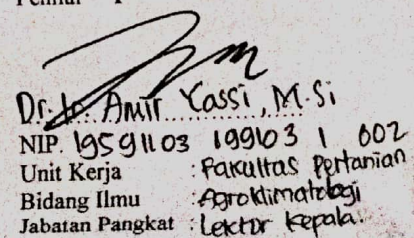 Dr. Ir. Amir Yassi, M.Si
NIP. 19591103 199103 1 002
Unit Kerja : Fakultas Pertanian
Bidang Ilmu : Agroklimatologi
Jabatan Pangkat : Lektor Kepala.